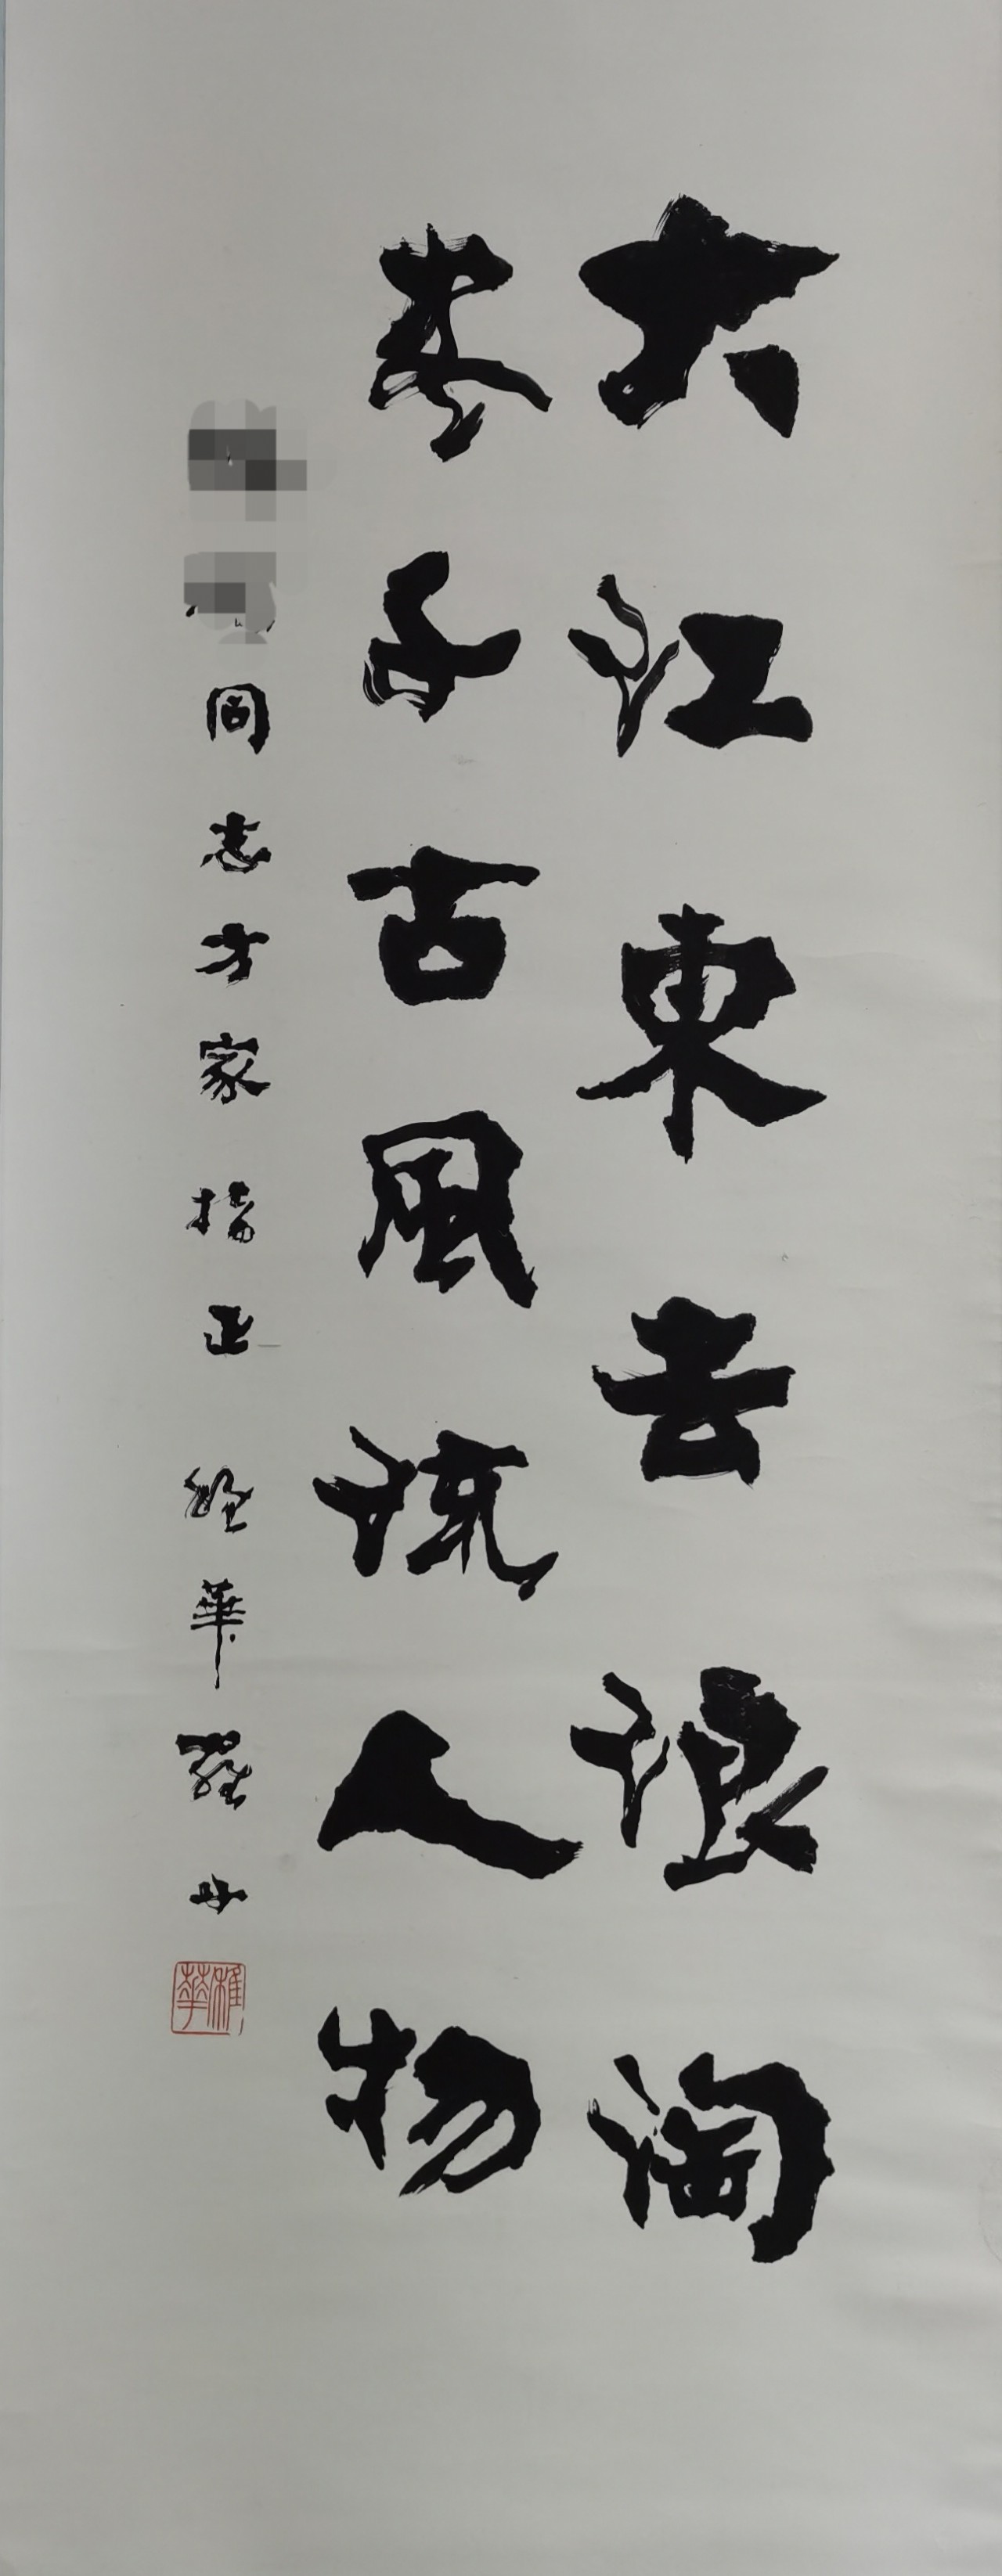 大江東去浪淘
尽千古風流人物
同志方家指正 華羅
雅華